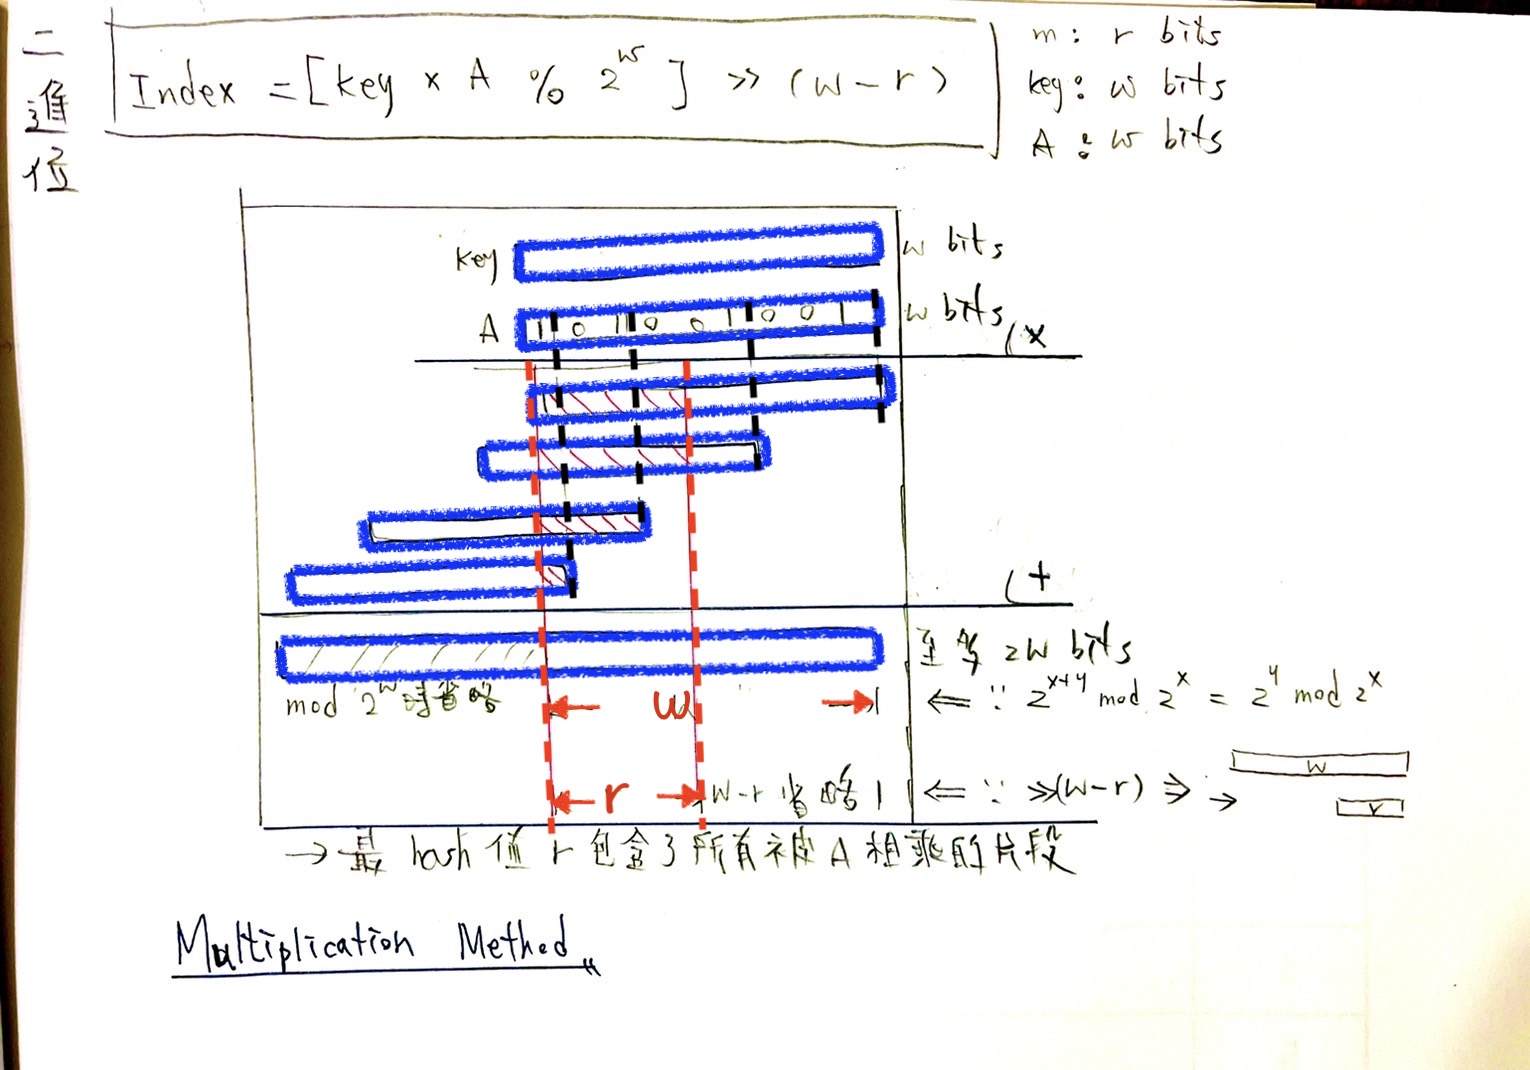 二進位
Index = [key x A % 2^w] >> (w-r)
m: r bits
key: w bits
A: w bits
key
w bits
A 1 0 1 0 0 1 0 0 1
w bits
(x
(+
至多 2w bits
mod 2^w 時省略
w
⇐ ∵ 2^x+y mod 2^x = 2^y mod 2^x
r
w-r 省略
⇐ ∵ >>(w-r) ⇒ →
w
r
→ 最 hash 值 r 包含了所有被 A 相乘的片段
Multiplication Method